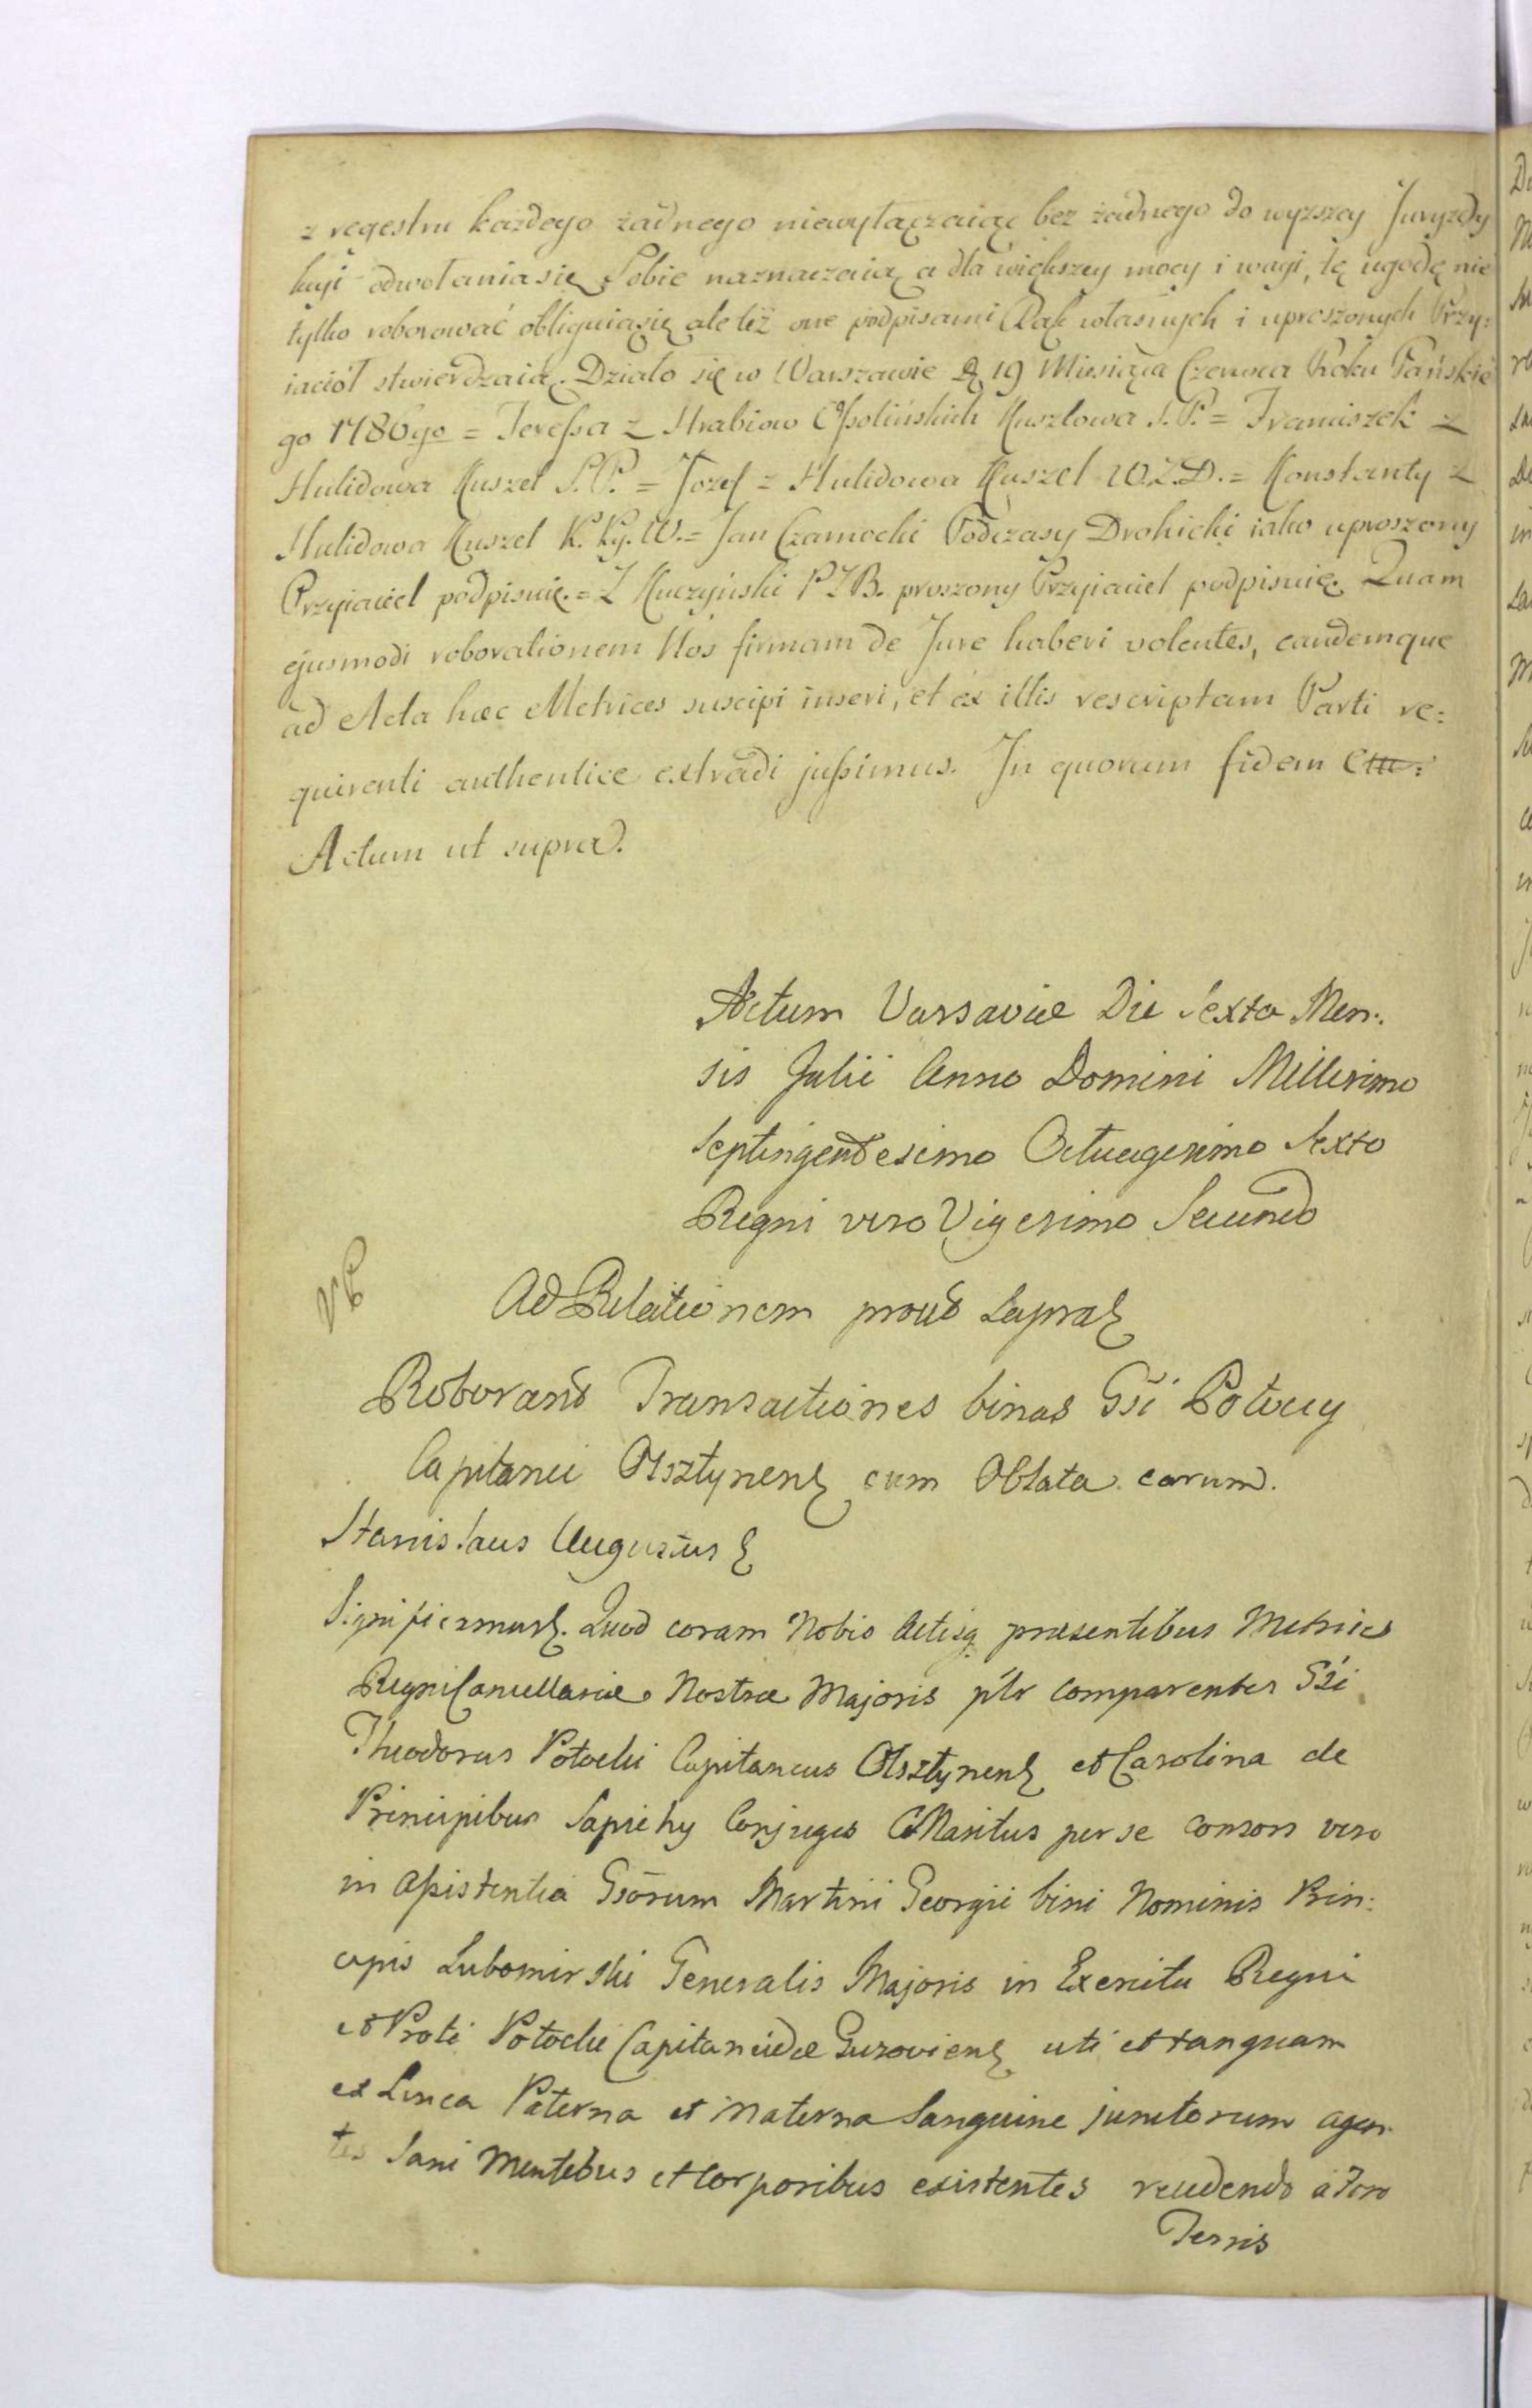 z regestru każdego żadnego niewyłączaiąc bez żadnego do wyższey Juryzdy
kcyi odwołania się Sobie naznaczaią a dla większey mocy i wagi, tę ugodę nie
tylko roborować obliguią się ale też one podpisami Rąk własnych i uproszonych Przy:
iaciół stwierdzaią. Działo się w Warszawie D. 19 Miesiąca Czerwca Roku Pańskie
go 1786go = Teressa z Hrabiow Ossolińskich Kuszlowa S.P. = Franciszek z
Hulidowa Kuszel S.P. = Jozef z Hulidowa Kuszel W.Z.D. = Konstanty z
Hulidowa Kuszel K. Ky. W. = Jan Czarnocki Podczaszy Drohicki iako uproszony
Przyiaciel podpisuię. = L Kuczyński P Z B. proszony Przyiaciel podpisuię. Quam
ejusmodi roborationem Nos firmam de Jure haberi volentes, eandemque
ad Acta hæc Metrices suscipi inseri, et ex illis rescriptam Parti re:
quirenti authentice extradi jussimus. In quorum fidem Ett:
Actum ut supra.
Actum Varsaviæ Die Sexta Men:
sis Julii Anno Domini Millesimo
Septingentesimo Octuagesimo Sexto
Regni vero Vigesimo Secundo
VP
Ad Relationem prout supra
Roborant Transactiones binas Gsi Potoccy
Capitanei Olsztynen cum Oblata earum.
Stanislaus Augustus
Significamus. Quod coram Nobis Actisq presentibus Metrices
Regni Cancellariæ Nostræ Majoris plr comparentes Gsi
Theodorus Potocki Capitaneus Olsztynen et Carolina de
Principibus Sapiehy Conjuges Maritus per se consors vero
in assistentia Gsorum Martini Georgii bini Nominis Prin:
cipis Lubomirski Generalis Majoris in Exercitu Regni
et Proti Potocki Capitaneidæ Guzovien uti et tanquam
ex Linea Paterna et Materna Sanguine junctorum agen
tes Sani Mentibus et Corporibus existentes recedendo a Foro
Terris